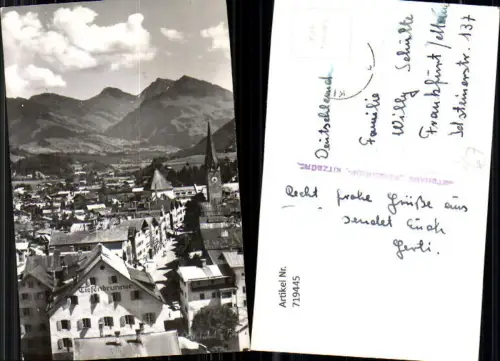 Tiefenbrunner
Deutschland
Familie
Willy Schülke
Frankfurt/Main
137
KITZBÜHEL
Recht frohe Grüße aus
sendet Euch
Gerli.
Artikel Nr.
719445